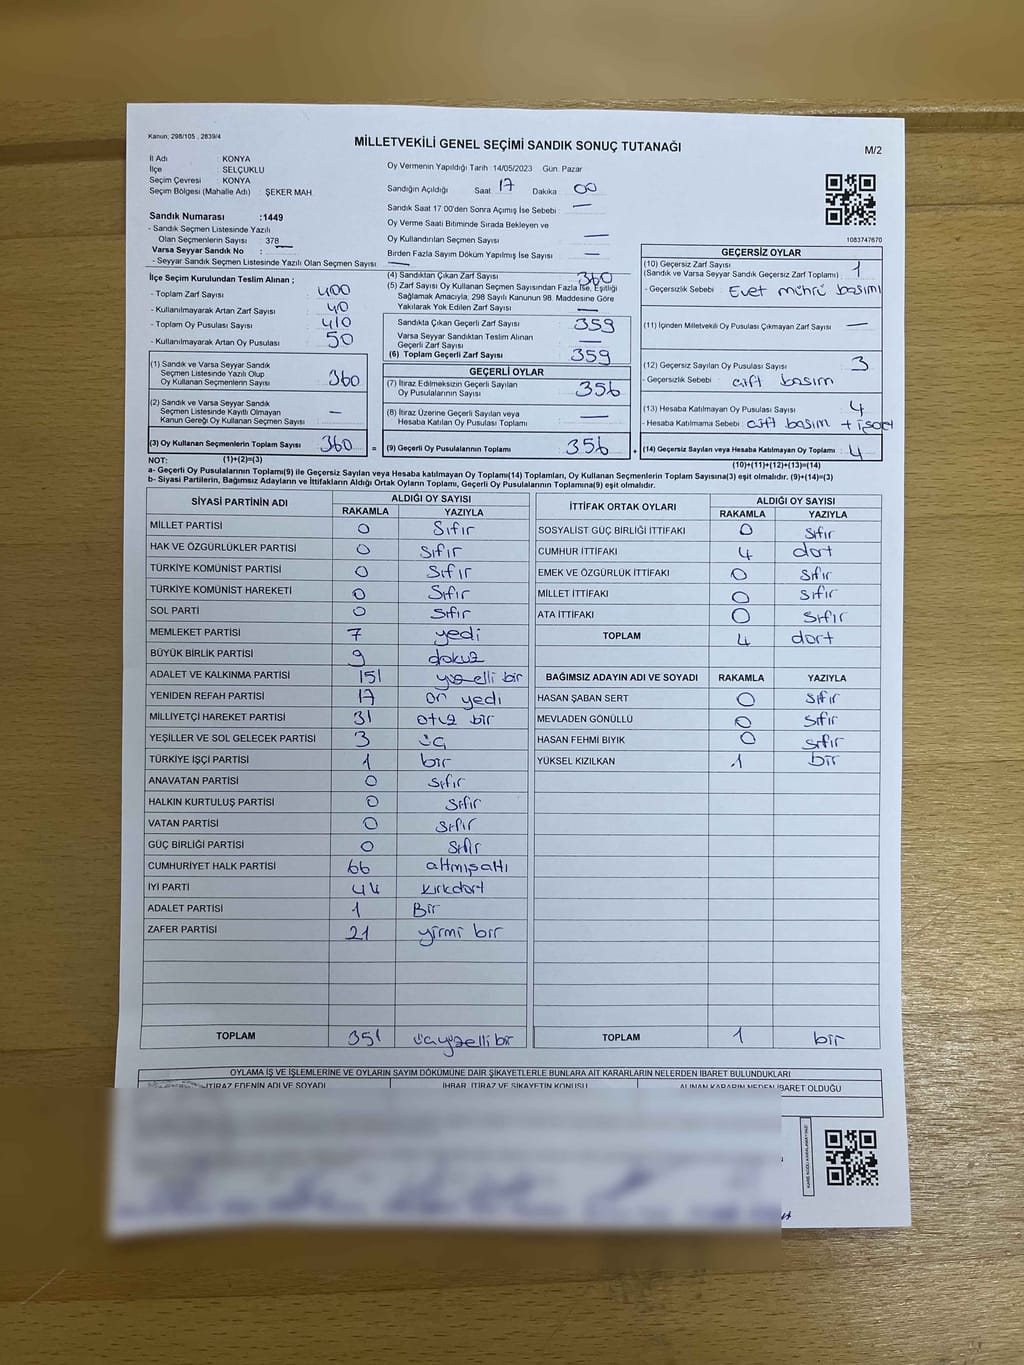 Kanun; 298/105 , 2839/4
MİLLETVEKİLİ GENEL SEÇİMİ SANDIK SONUÇ TUTANAĞI
M/2
İl Adı KONYA
İlçe SELÇUKLU
Seçim Çevresi : KONYA
Seçim Bölgesi (Mahalle Adı) : ŞEKER MAH
Sandık Numarası :1449
- Sandık Seçmen Listesinde Yazılı
Olan Seçmenlerin Sayısı : 378
Varsa Seyyar Sandık No :
- Seyyar Seçmen Listesinde Yazılı Olan Seçmen Sayısı —
Oy Vermenin Yapıldığı Tarih :14/05/2023 Gün: Pazar
Sandığın Açıldığı Saat 17 Dakika 00
Sandık Saat 17:00'den Sonra Açılmış İse Sebebi : —
Oy Verme Saati Bitiminde Sırada Bekleyen ve
Oy Kullandırılan Seçmen Sayısı —
Birden Fazla Sayım Döküm Yapılmış İse Sayısı —
1083747670
İlçe Seçim Kurulundan Teslim Alınan ;
- Toplam Zarf Sayısı 400
- Kullanılmayarak Artan Zarf Sayısı 40
- Toplam Oy Pusulası Sayısı 410
- Kullanılmayarak Artan Oy Pusulası 50
(1) Sandık ve Varsa Seyyar Sandık
Seçmen Listesinde Yazılı Olup
Oy Kullanan Seçmenlerin Sayısı 360
(2) Sandık ve Varsa Seyyar Sandık
Seçmen Listesinde Kayıtlı Olmayan
Kanun Gereği Oy Kullanan Seçmen Sayısı —
(3) Oy Kullanan Seçmenlerin Toplam Sayısı 360 =
(1)+(2)=(3)
(4) Sandıktan Çıkan Zarf Sayısı 360
(5) Zarf Sayısı Oy Kullanan Seçmen Sayısından Fazla İse, Eşitliği
Sağlamak Amacıyla, 298 Sayılı Kanunun 98. Maddesine Göre
Yakılarak Yok Edilen Zarf Sayısı —
Sandıkta Çıkan Geçerli Zarf Sayısı 359
Varsa Seyyar Sandıktan Teslim Alınan
Geçerli Zarf Sayısı —
(6) Toplam Geçerli Zarf Sayısı 359
GEÇERLİ OYLAR
(7) İtiraz Edilmeksizin Geçerli Sayılan
Oy Pusulalarının Sayısı 356
(8) İtiraz Üzerine Geçerli Sayılan veya
Hesaba Katılan Oy Pusulası Toplamı —
(9) Geçerli Oy Pusulalarının Toplamı 356 +
GEÇERSİZ OYLAR
(10) Geçersiz Zarf Sayısı 1
(Sandık ve Varsa Seyyar Sandık Geçersiz Zarf Toplamı)
- Geçersizlik Sebebi : Evet mührü basımı
(11) İçinden Milletvekili Oy Pusulası Çıkmayan Zarf Sayısı —
(12) Geçersiz Sayılan Oy Pusulası Sayısı 3
- Geçersizlik Sebebi : çift basım
(13) Hesaba Katılmayan Oy Pusulası Sayısı 4
- Hesaba Katılmama Sebebi çift basım +
(14) Geçersiz Sayılan veya Hesaba Katılmayan Oy Toplamı 4
(10)+(11)+(12)+(13)=(14)
NOT:
a- Geçerli Oy Pusulalarının Toplamı(9) ile Geçersiz Sayılan veya Hesaba katılmayan Oy Toplamı(14) Toplamları, Oy Kullanan Seçmenlerin Toplam Sayısına(3) eşit olmalıdır. (9)+(14)=(3)
b- Siyasi Partilerin, Bağımsız Adayların ve İttifakların Aldığı Ortak Oyların Toplamı, Geçerli Oy Pusulalarının Toplamına(9) eşit olmalıdır.
SİYASİ PARTİNİN ADI ALDIĞI OY SAYISI
RAKAMLA YAZIYLA
MİLLET PARTİSİ 0 Sıfır
HAK VE ÖZGÜRLÜKLER PARTİSİ 0 sıfır
TÜRKİYE KOMÜNİST PARTİSİ 0 Sıfır
TÜRKİYE KOMÜNİST HAREKETİ 0 Sıfır
SOL PARTİ 0 sıfır
MEMLEKET PARTİSİ 7 yedi
BÜYÜK BİRLİK PARTİSİ 9 dokuz
ADALET VE KALKINMA PARTİSİ 151 yüzelli bir
YENİDEN REFAH PARTİSİ 17 on yedi
MİLLİYETÇİ HAREKET PARTİSİ 31 otuz bir
YEŞİLLER VE SOL GELECEK PARTİSİ 3 üç
TÜRKİYE İŞÇİ PARTİSİ 1 bir
ANAVATAN PARTİSİ 0 sıfır
HALKIN KURTULUŞ PARTİSİ 0 sıfır
VATAN PARTİSİ 0 sıfır
GÜÇ BİRLİĞİ PARTİSİ 0 sıfır
CUMHURİYET HALK PARTİSİ 66 altmışaltı
İYİ PARTİ 44 kırkdört
ADALET PARTİSİ 1 Bir
ZAFER PARTİSİ 21 yirmi bir
TOPLAM 351 üçyüzelli bir
İTTİFAK ORTAK OYLARI ALDIĞI OY SAYISI
RAKAMLA YAZIYLA
SOSYALİST GÜÇ BİRLİĞİ İTTİFAKI 0 sıfır
CUMHUR İTTİFAKI 4 dört
EMEK VE ÖZGÜRLÜK İTTİFAKI 0 sıfır
MİLLET İTTİFAKI 0 sıfır
ATA İTTİFAKI 0 sıfır
TOPLAM 4 dört
BAĞIMSIZ ADAYIN ADI VE SOYADI RAKAMLA YAZIYLA
HASAN ŞABAN SERT 0 sıfır
MEVLADEN GÖNÜLLÜ 0 sıfır
HASAN FEHMİ BIYIK 0 sıfır
YÜKSEL KIZILKAN 1 bir
TOPLAM 1 bir
OYLAMA İŞ VE İŞLEMLERİNE VE OYLARIN SAYIM DÖKÜMÜNE DAİR ŞİKAYETLERLE BUNLARA AİT KARARLARIN NELERDEN İBARET BULUNDUKLARI
İTİRAZ EDENİN ADI VE SOYADI İHBAR, İTİRAZ VE ŞİKAYETİN KONUSU ALINAN KARARIN NEDEN İBARET OLDUĞU